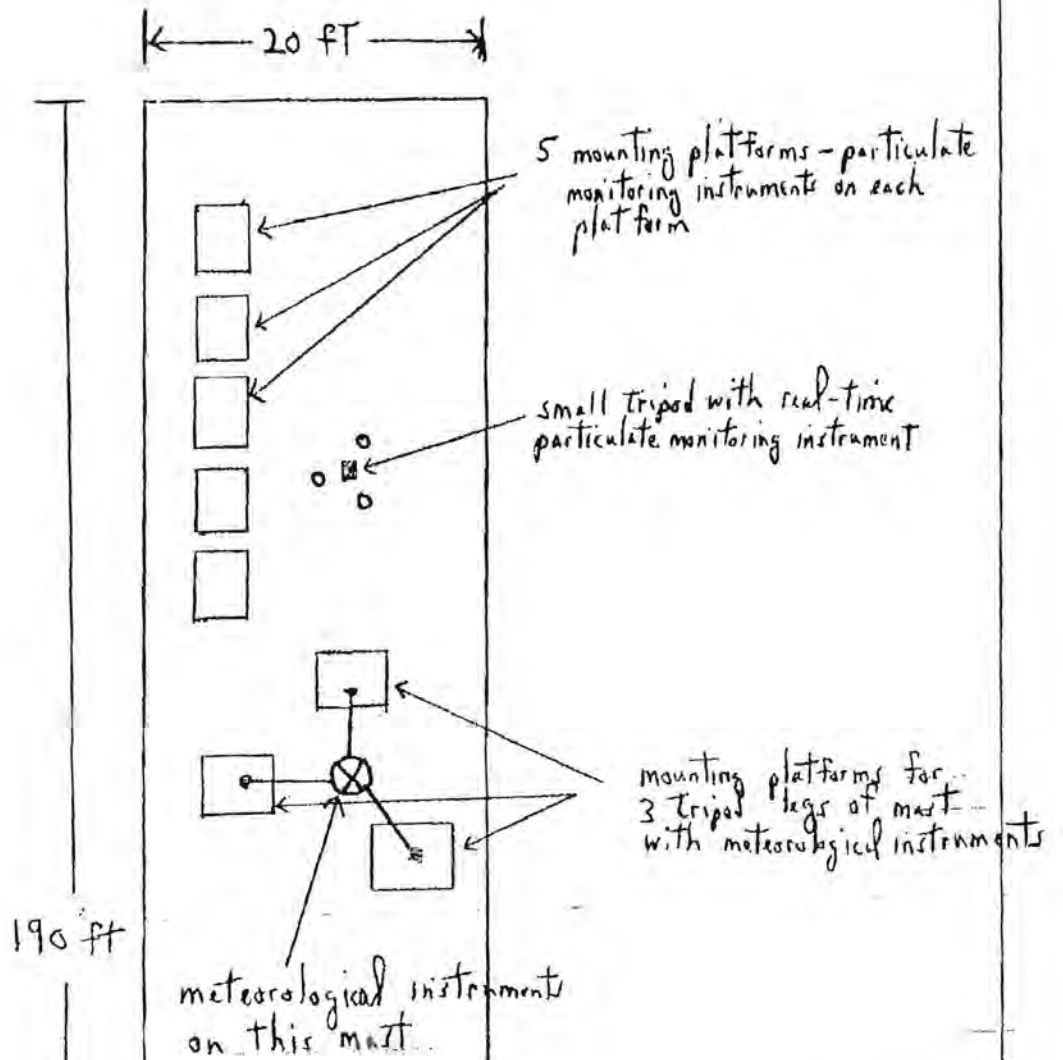 20 fT
5 mounting platforms - particulate
monitoring instruments on each
platform
small tripod with real-time
particulate monitoring instrument
mounting platforms for
3 tripod legs of mast
with meteorological instruments
190 ft
meteorological instruments
on this mast